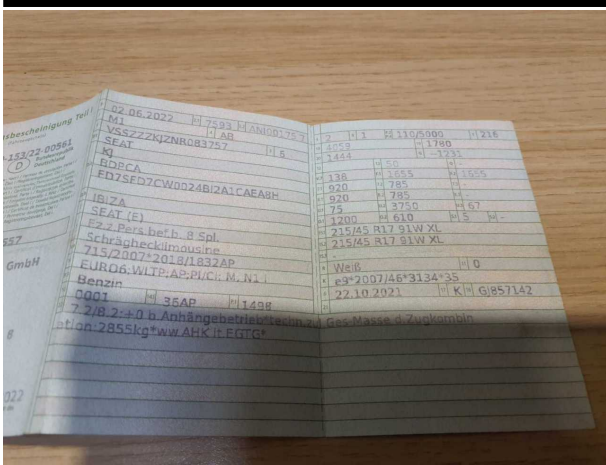 sbescheinigung Teil I
-153/22-00561
D
Bundesrepublik
Deutschland
557
GmbH
8
022
02.06.2022 7593 ANI00175 7
M1 AB
VSSZZZKJZNR083757 6
SEAT
KJ
BDPCA
FD7SFD7CW0024BI2A1CAEA8H
IBIZA
SEAT (E)
Fz.z.Pers.bef.b. 8 Spl.
Schräghecklimousine
715/2007*2018/1832AP
EURO6;WLTP;AP;PI/CI; M, N1 I
Benzin
0001 36AP 1498
7.2/8.2:+0 b.Anhängebetrieb*techn.zul Ges-Masse d.Zugkombin
ation:2855kg*ww.AHK lt.EGTG*
2 1 110/5000 216
4059 1780
1444 -1231
50 -
138 1655 1655
920 785 -
920 785 -
75 3750 67
1200 610 5 -
215/45 R17 91W XL
215/45 R17 91W XL
-
Weiß 0
e9*2007/46*3134*35
22.10.2021 K GJ857142